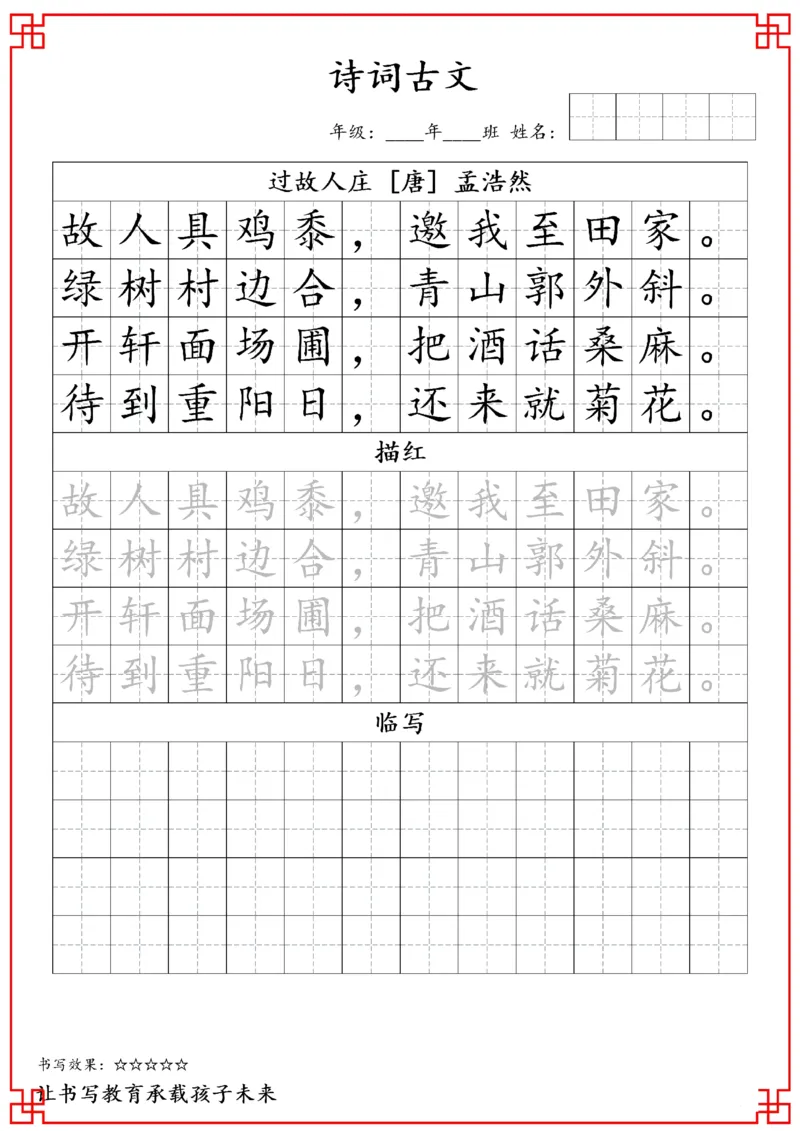 诗词古文
年级：____年____班 姓名：
过故人庄［唐］孟浩然
故人具鸡黍，邀我至田家。
绿树村边合，青山郭外斜。
开轩面场圃，把酒话桑麻。
待到重阳日，还来就菊花。
描红
故人具鸡黍，邀我至田家。
绿树村边合，青山郭外斜。
开轩面场圃，把酒话桑麻。
待到重阳日，还来就菊花。
临写
书写效果：☆☆☆☆☆
让书写教育承载孩子未来